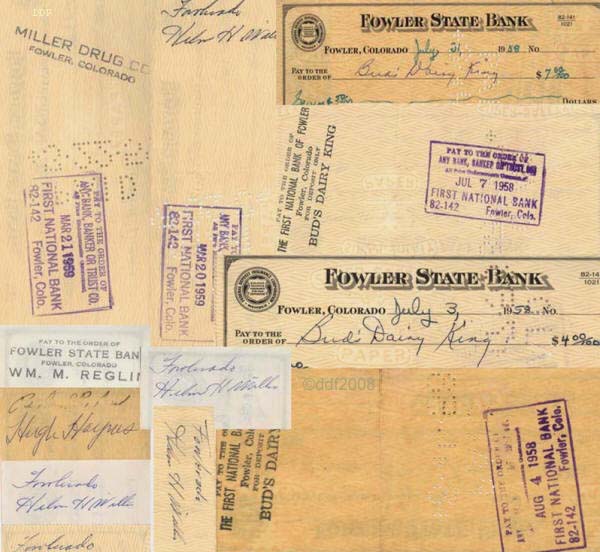 DDF
MILLER DRUG CO
FOWLER, COLORADO
FOWLER STATE BANK
82-141
1021
FOWLER, COLORADO July 3, 1958 No.
PAY TO THE
ORDER OF Bud's Dairy King $7.00
DOLLARS
PAY TO THE ORDER OF
THE FIRST NATIONAL BANK OF FOWLER
Fowler, Colorado
FOR DEPOSIT ONLY
BUD'S DAIRY KING
PAY TO THE ORDER OF
ANY BANK, BANKER OR TRUST CO.
JUL 7 1958
FIRST NATIONAL BANK
82-142 Fowler, Colo.
PAY TO THE ORDER OF
ANY BANK, BANKER OR TRUST CO.
MAR 21 1959
FIRST NATIONAL BANK
82-142 Fowler, Colo.
PAY TO
ANY BANK,
MAR 20 1959
FIRST NATIONAL
82-142 Fowler, Colo.
FOWLER STATE BANK
82-14
1021
FOWLER, COLORADO July 3, 1958 No.
PAY TO THE
ORDER OF Bud's Dairy King $4.00
PAY TO THE ORDER OF
FOWLER STATE BAN
FOWLER, COLORADO
WM. M. REGLI
©ddf2008
Hugh Haynes
THE FIRST NATIONAL B
Fowler, Col
FOR DEPOSIT
BUD'S DAIRY
PAY TO THE ORDER OF
AUG 4 1958
FIRST NATIONAL BANK
82-142 Fowler, Colo.